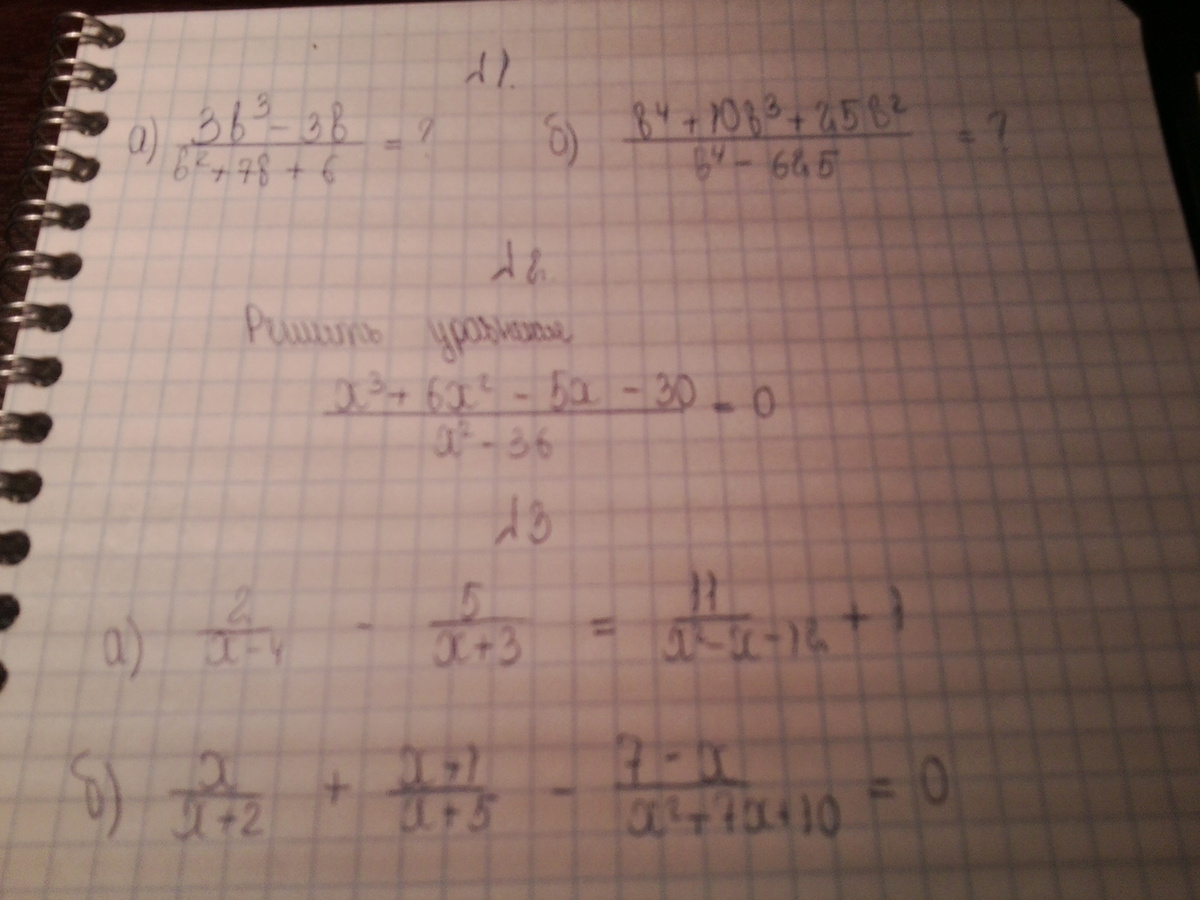 №1.
а) (3b³ - 3b)/(b² + 7b + 6) = ? б) (b⁴ + 10b³ + 25b²)/(b⁴ - 625) = ?
№2.
Решить уравнения
(x³ + 6x² - 5x - 30)/(x² - 36) = 0
№3
а) 2/(x-4) - 5/(x+3) = 11/(x²-x-12) + 1
б) x/(x+2) + (x+1)/(x+5) - (7-x)/(x²+7x+10) = 0